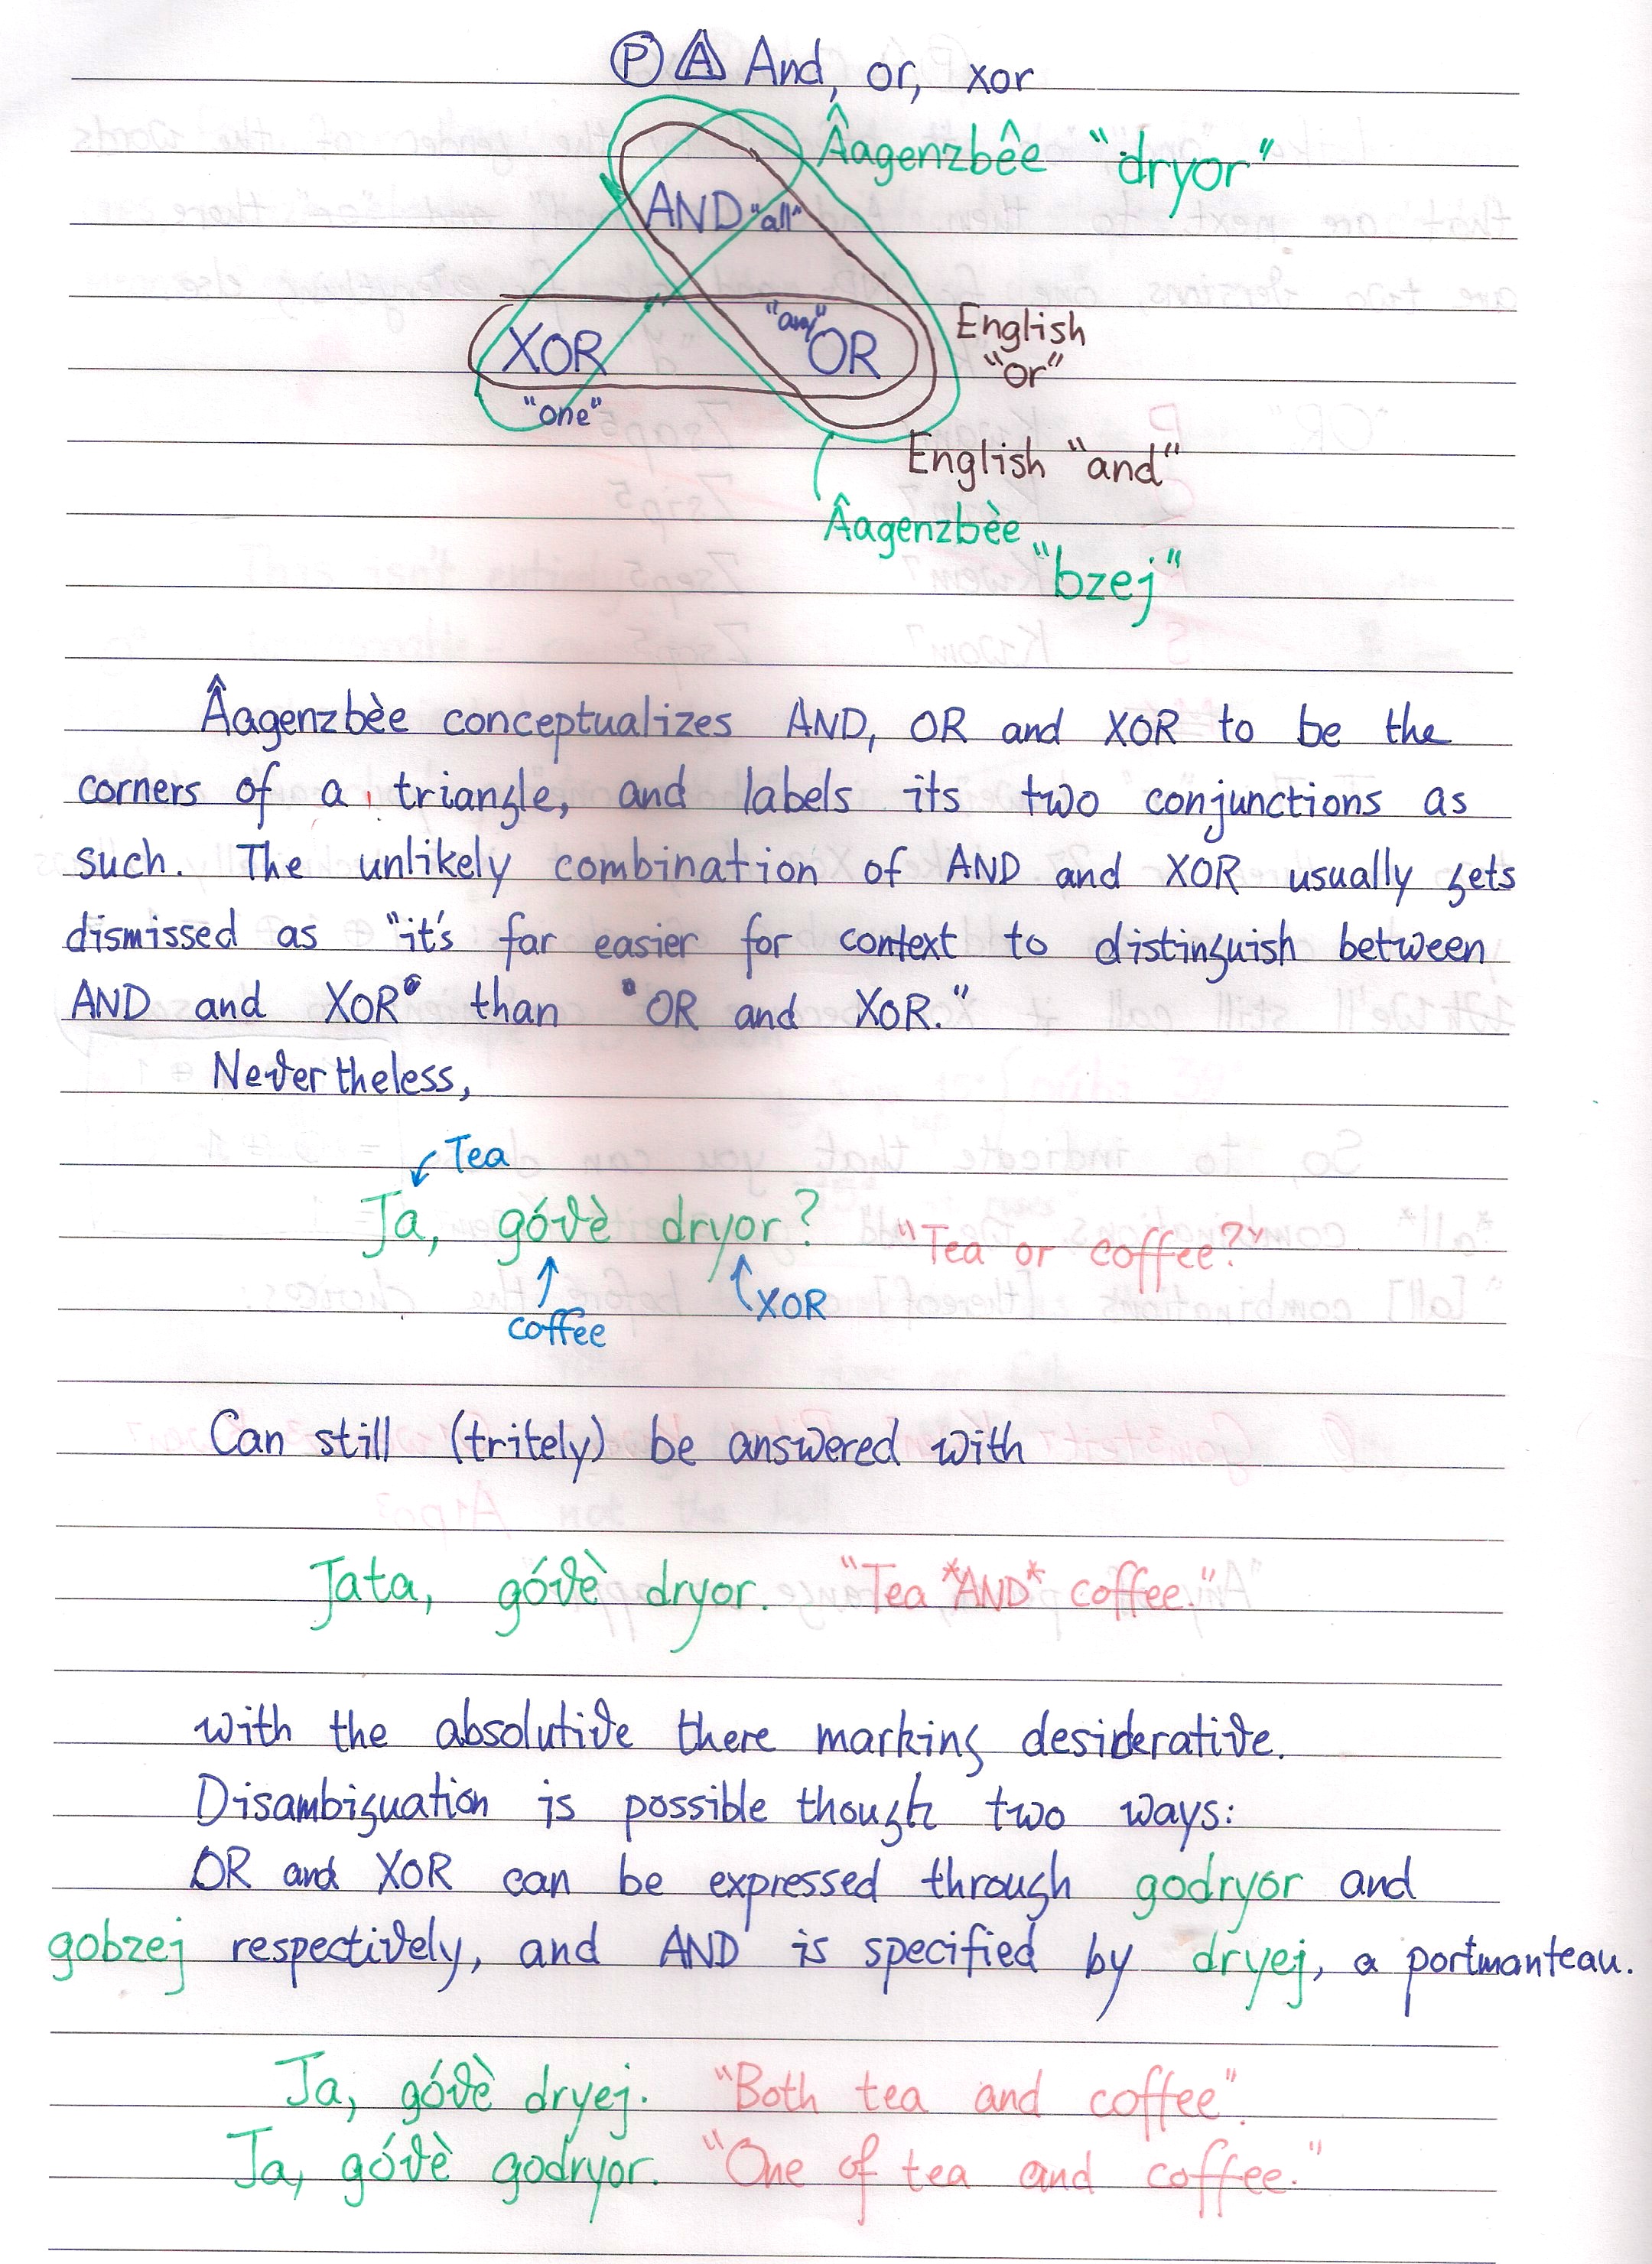 Ⓟ A And, or, xor
Âagenzbêe "dryor"
AND "all"
XOR "any" OR
"one"
English
"or"
English "and"
Âagenzbèe
"bzej"
Âagenzbèe conceptualizes AND, OR and XOR to be the
corners of a triangle, and labels its two conjunctions as
such. The unlikely combination of AND and XOR usually gets
dismissed as "it's far easier for context to distinguish between
AND and XOR than OR and XOR."
Nevertheless,
Tea
Ja, góvè dryor? "Tea or coffee?"
coffee
XOR
Can still (tritely) be answered with
Jata, góvè dryor. "Tea *AND* coffee."
with the absolutive there marking desiderative.
Disambiguation is possible though two ways:
OR and XOR can be expressed through godryor and
gobzej respectively, and AND is specified by dryej, a portmanteau.
Ja, góvè dryej. "Both tea and coffee".
Ja, góvè godryor. "One of tea and coffee."